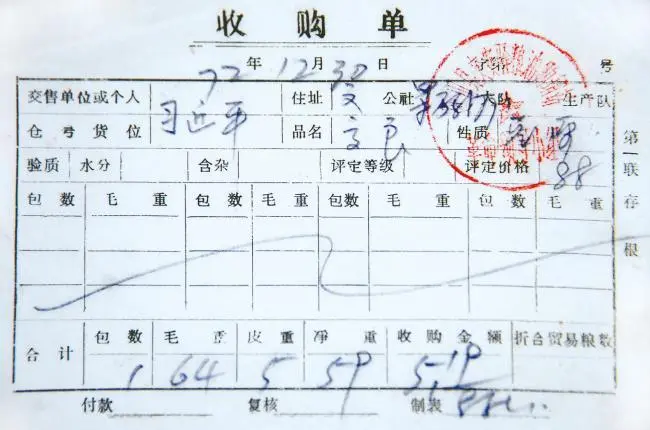 收 购 单
72 年 12 月 30 日 字第 号
交售单位或个人 习近平 住址 文 公社 大队 生产队
仓号货位 品名 性质
验质 水分 含杂 评定等级 评定价格 88
包数 毛重 包数 毛重 包数 毛重 包数 毛重
合计 包数 毛重 皮重 净重 收购金额 折合贸易粮数
1 64 5 59 5.19
付款 复核 制表
第 联 存 根